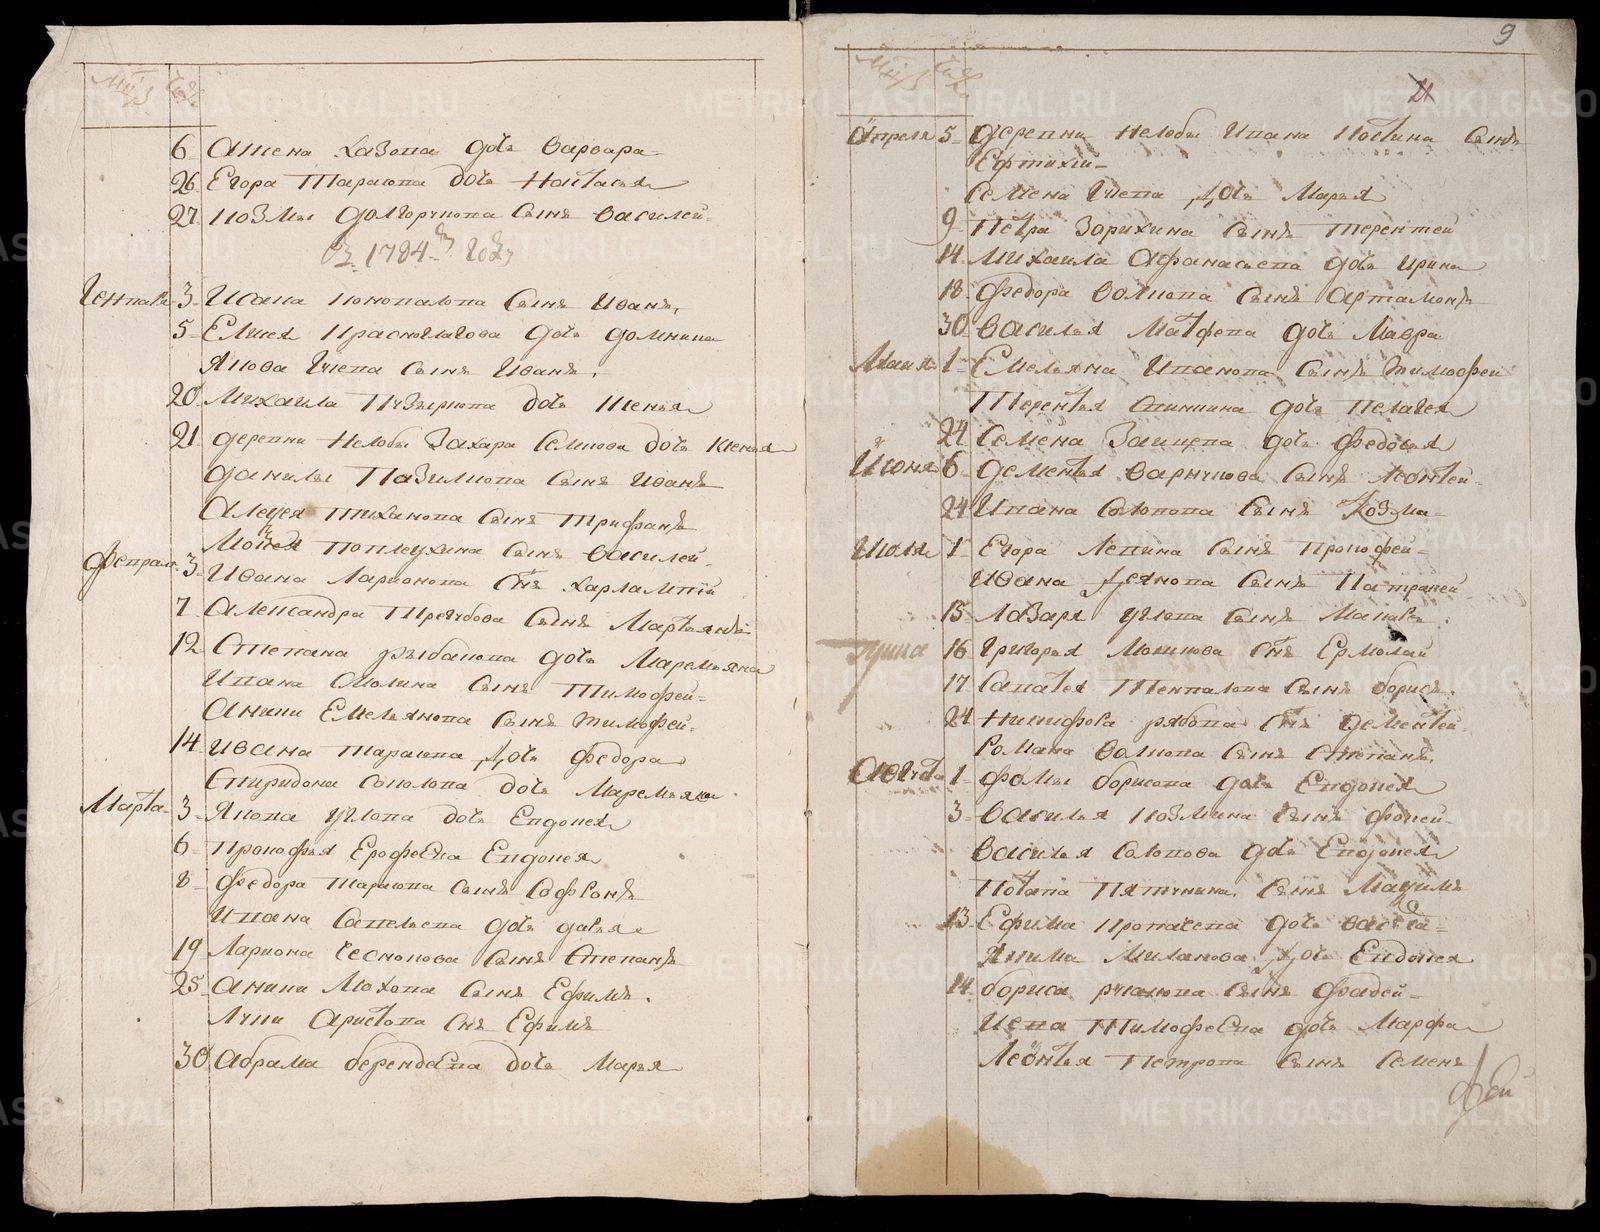 Мцъ Числ
6 Ямена Хазова дочь Варвара
26 Егора Тарасова дочь Настасья
27 Козмы Долгорукова сынъ Василей
въ 1784м году
Генваря 3 Исака Коновалова сынъ Иванъ
5 Елисея Красноглазова дочь Домника
Якова Гусева сынъ Иванъ
20 Михаила Пузыркова дочь Ксенья
21 деревни Нелобы Захара Семкова дочь Ксенья
Данилы Пазилкова сынъ Иванъ
Алексея Тиханова сынъ Трифанъ
Мойсея Поплеухина сынъ Василей
Февраля 3 Ивана Ларионова снъ Харлампий
7 Александра Трегубова сынъ Мартьянъ
12 Степана Рыбакова дочь Маремьяна
Ивана Смолина сынъ Тимофей
Аники Емельянова сынъ Тимофей
14 Ивана Тарасова дочь Федора
Спиридона Соколова дочь Маремьяна
Марта 3 Якова Углова дочь Евдокея
6 Прокофья Ерофеева Евдокея
8 Федора Тарасова сынъ Софронъ
Ивана Савельева дочь Дарья
19 Лариона Чеснокова сынъ Степанъ
25 Аники Мохова сынъ Ефимъ
Луки Аристова снъ Ефимъ
30 Абрама Берендеева дочь Марья
9
21
Мцъ Числ
Апреля 5 деревни Нелобы Ивана Костина сынъ
Евтихий
Семена Гусева дочь Марья
9 Петра Зорихина сынъ Терентей
14 Михаила Афанасьева дочь Ирина
18 Федора Волкова сынъ Артамонъ
30 Василья Матфева дочь Мавра
Маия 1 Емельяна Иванова сынъ Тимофей
Терентья Спицина дочь Пелагея
24 Семена Заицева дочь Федосья
Июня 6 Дементья Варнукова сынъ Леонтей
24 Ивана Солопова сынъ Козма
Июля 1 Егора Лепина сынъ Прокофей
Ивана Деянова сынъ Патракей
15 Лазаря Углева сынъ Макаръ
16 Григорья Мошкова снъ Ермолай
17 Сапатея Тенталова сынъ Борисъ
24 Никифора Рябова снъ Дементей
Романа Волкова сынъ Степанъ
Августа 1 Фомы Борисова дочь Евдокея
3 Василья Козмина сынъ Фокей
Василья Солопова дочь Евдокея
Потапа Пятунина сынъ Максимъ
13 Ефима Кропачева дочь
Якима Милакова дочь Евдокея
14 Бориса Русакова сынъ Фадей
Тимофеева дочь Марфа
Леонтья Петрова сынъ Семенъ
METRIKI.GASO-URAL.RU